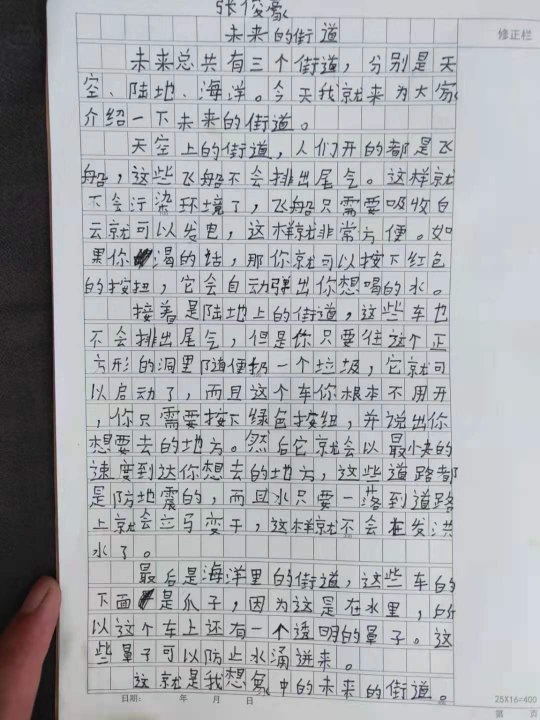 张俊豪
未来的街道
修正栏
未来总共有三个街道，分别是天
空、陆地、海洋。今天我就来为大家
介绍一下未来的街道。
天空上的街道，人们开的都是飞
船，这些飞船不会排出尾气。这样就
不会污染环境了，飞船只需要吸收白
云就可以发电，这样就非常方便。如
果你渴的话，那你就可以按下红色
的按扭，它会自动弹出你想喝的水。
接着是陆地上的街道，这些车也
不会排出尾气，但是你只要往这个正
方形的洞里随便扔一个垃圾，它就可
以启动了，而且这个车你根本不用开
，你只需要按下绿色按纽，并说出你
想要去的地方。然后它就会以最小夫的
速度到达你想去的地方，这些道路都
是防地震的，而且水只要一落到道路
上就会立马变干，这样就不会在发洪
水了。
最后是海洋里的街道，这些车的
下面是爪子，因为这是在水里，所
以这个车上还有一个透明的罩子。这
些罩子可以防止水涌进来。
这就是我想象中的未来的街道。
日期： 年 月 日
25X16=400
第 页